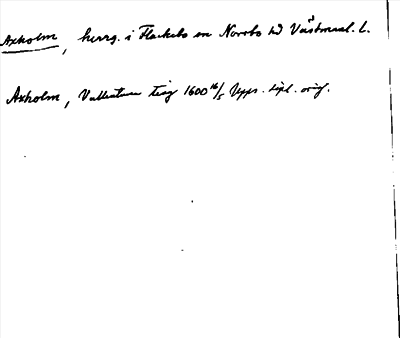 Axholm, herrg. i Flackebo sn Norrbo hd Västmanl. L.
Axholm, Vallentuna ting 1600 16/5 Upps. dipl. orig.